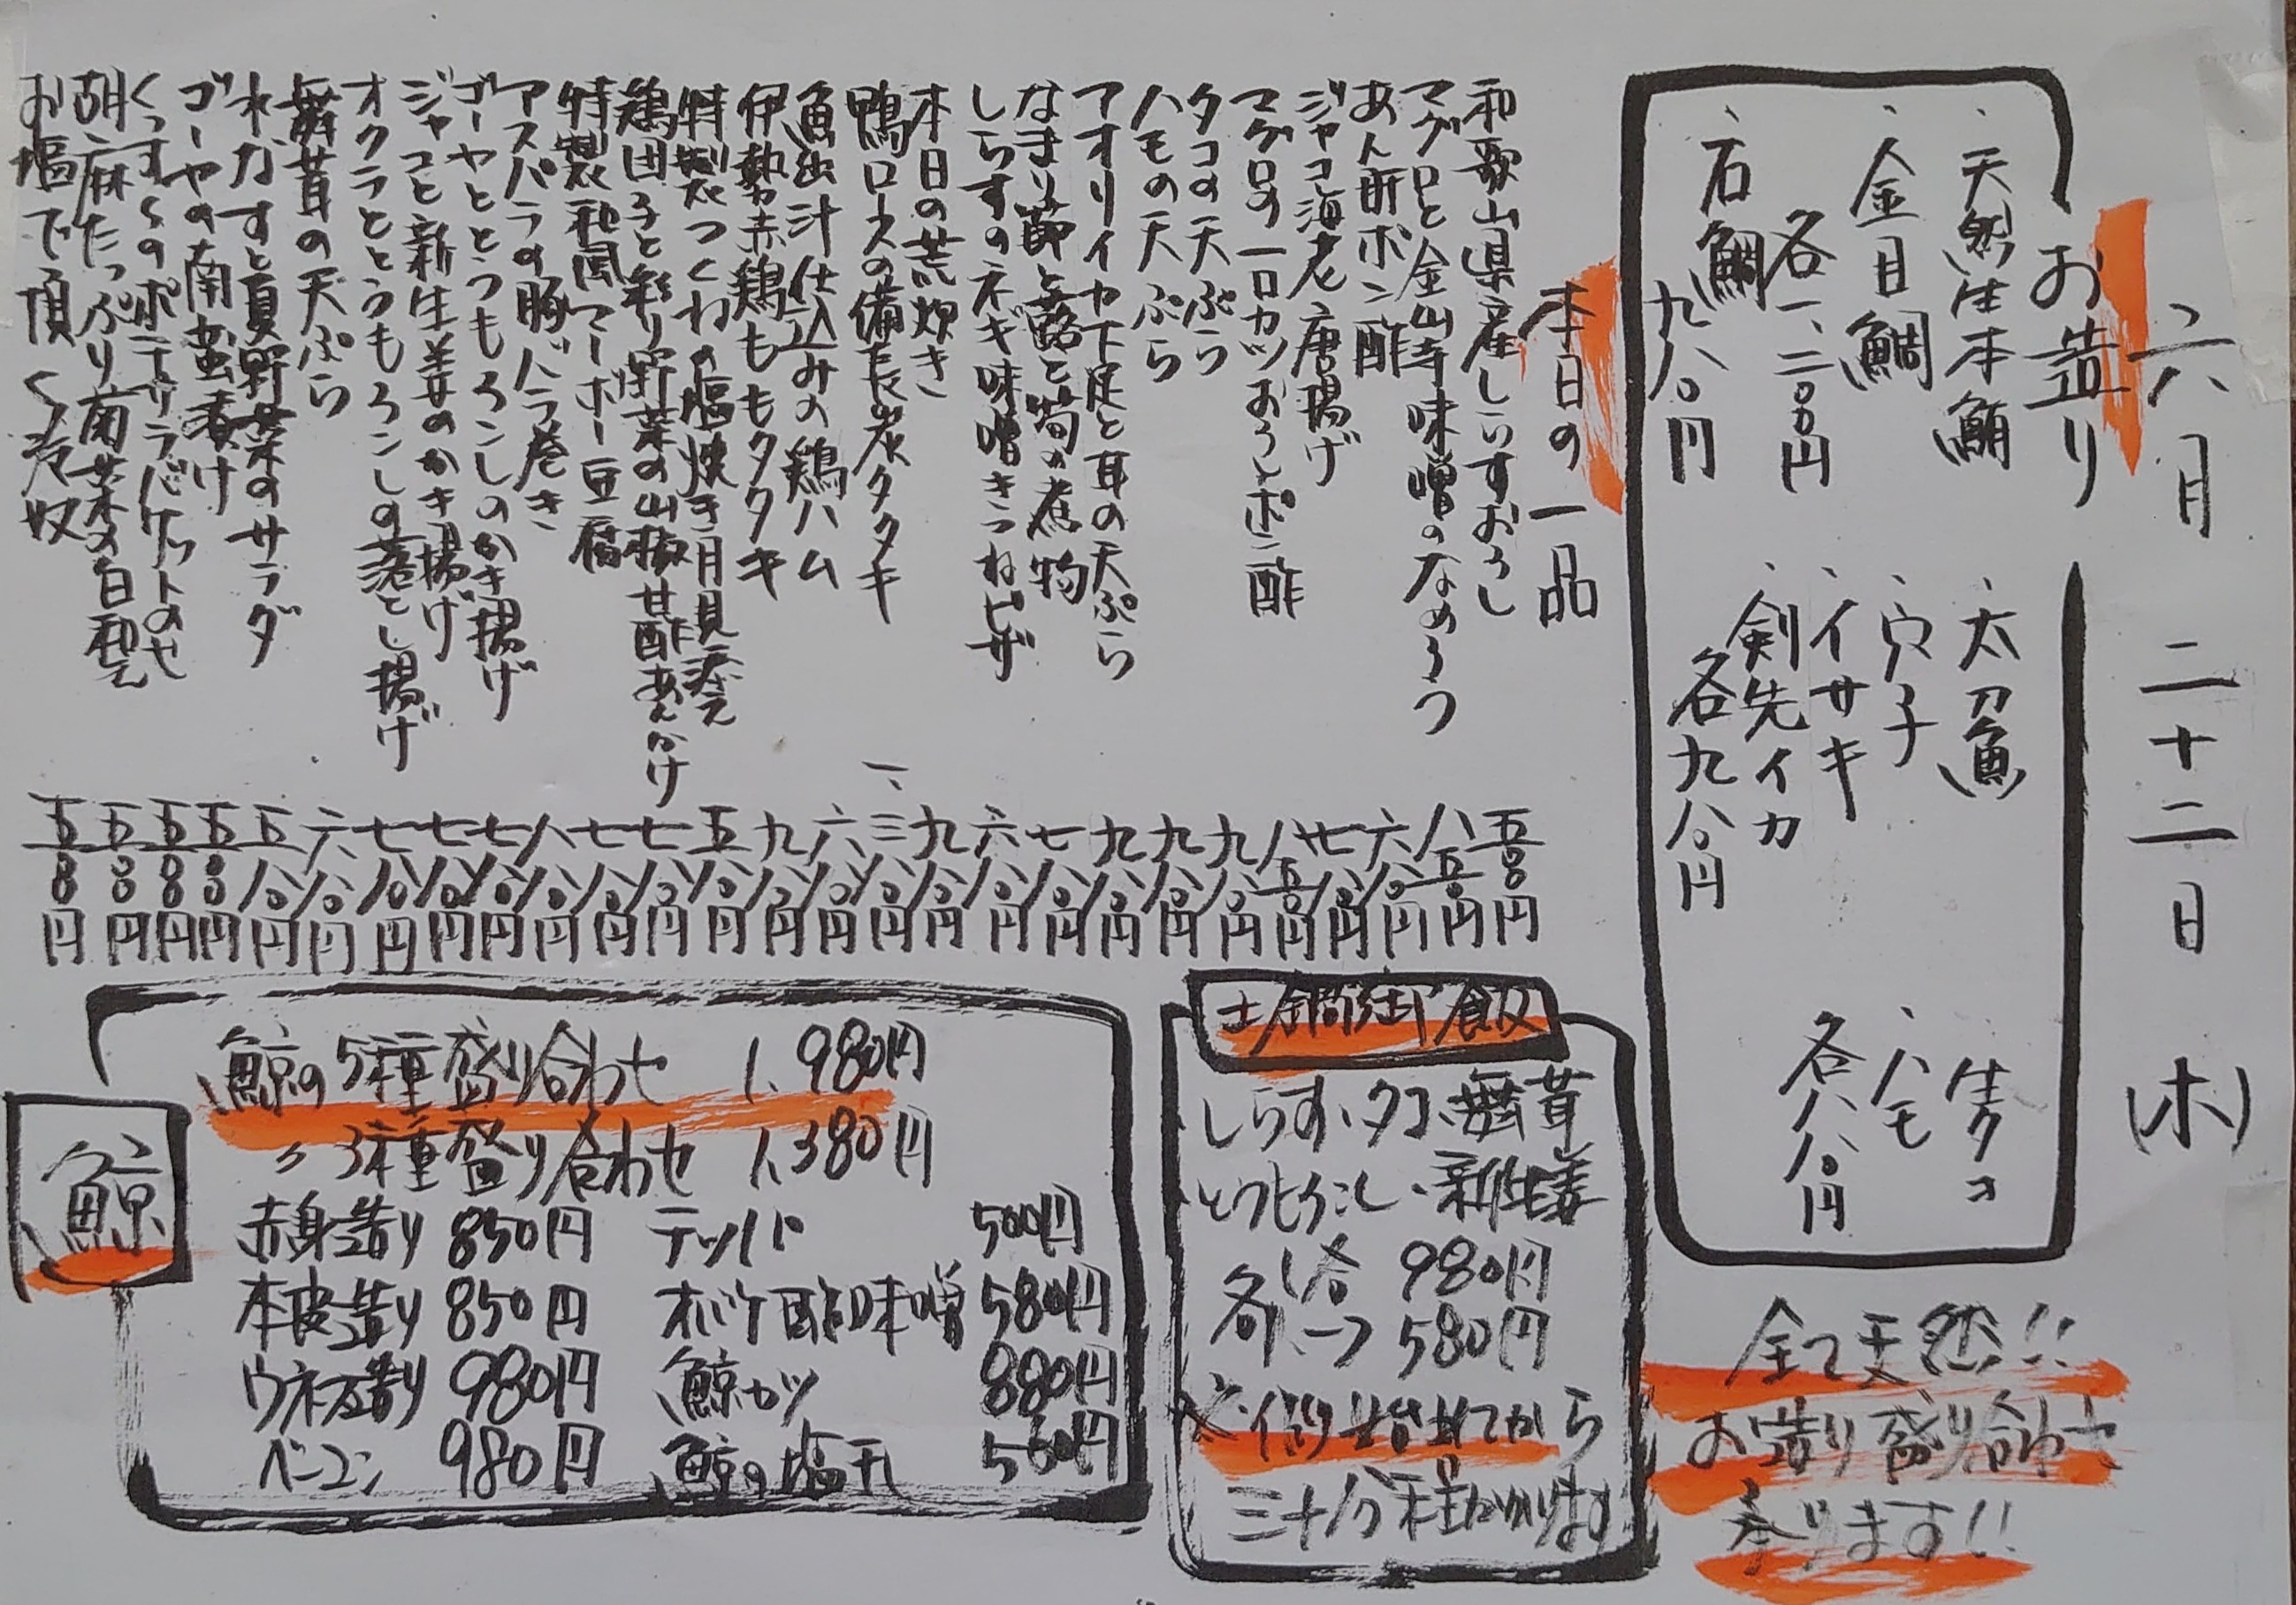 六月 二十二日 (木)
お造り
・天然生本鮪
・金目鯛
各一、二〇〇円
・石鯛
九八〇円
・太刀魚
・穴子
・イサキ
・剣先イカ
各九八〇円
・生タコ
・ハモ
各八八〇円
全て天然!!
お造り盛り合わせ
承ります!!
本日の一品
和歌山県産しらすおろし 五八〇円
マグロと金山寺味噌のなめろう 八五〇円
あん肝ポン酢 六八〇円
ジャコ海老唐揚げ 七八〇円
マグロの一口カツおろしポン酢 八五〇円
タコの天ぷら 九八〇円
ハモの天ぷら 九八〇円
アオリイカ下足と耳の天ぷら 九八〇円
なまり節と蕗と筍の煮物 七八〇円
しらすのネギ味噌きつねピザ 六八〇円
本日の荒炊き 九八〇円
鴨ロースの備長炭タタキ 一、三八〇円
魚出汁仕込みの鶏ハム 六八〇円
伊勢赤鶏ももタタキ 九八〇円
特製つくねの塩焼き月見添え 五八〇円
鶏団子と彩り野菜の山椒甘酢あんかけ 七八〇円
特製和風マーボー豆腐 七八〇円
アスパラの豚バラ巻き 八八〇円
ゴーヤととうもろこしのかき揚げ 七八〇円
ジャコと新生姜のかき揚げ 七八〇円
オクラととうもろこしの落とし揚げ 七八〇円
舞茸の天ぷら 六八〇円
水なすと夏野菜のサラダ 五八〇円
ゴーヤの南蛮漬け 五〇〇円
くつすくのポテサラバケットのせ 五〇〇円
胡麻たっぷり菊菜の白和え 五〇〇円
お塩で頂く冷奴 五〇〇円
土鍋御飯
しらす、タコ、舞茸
とうもろこし、新生姜
各一合 980円
各ハーフ 580円
※御注文頂いてから
三十分程かかります
鯨
鯨の5種盛り合わせ 1、980円
〃 3種盛り合わせ 1、380円
赤身造り 850円 テッパ 500円
本皮造り 850円 オバケ酢味噌 580円
ウネス造り 980円 鯨カツ 880円
ベーコン 980円 鯨の塩干 560円